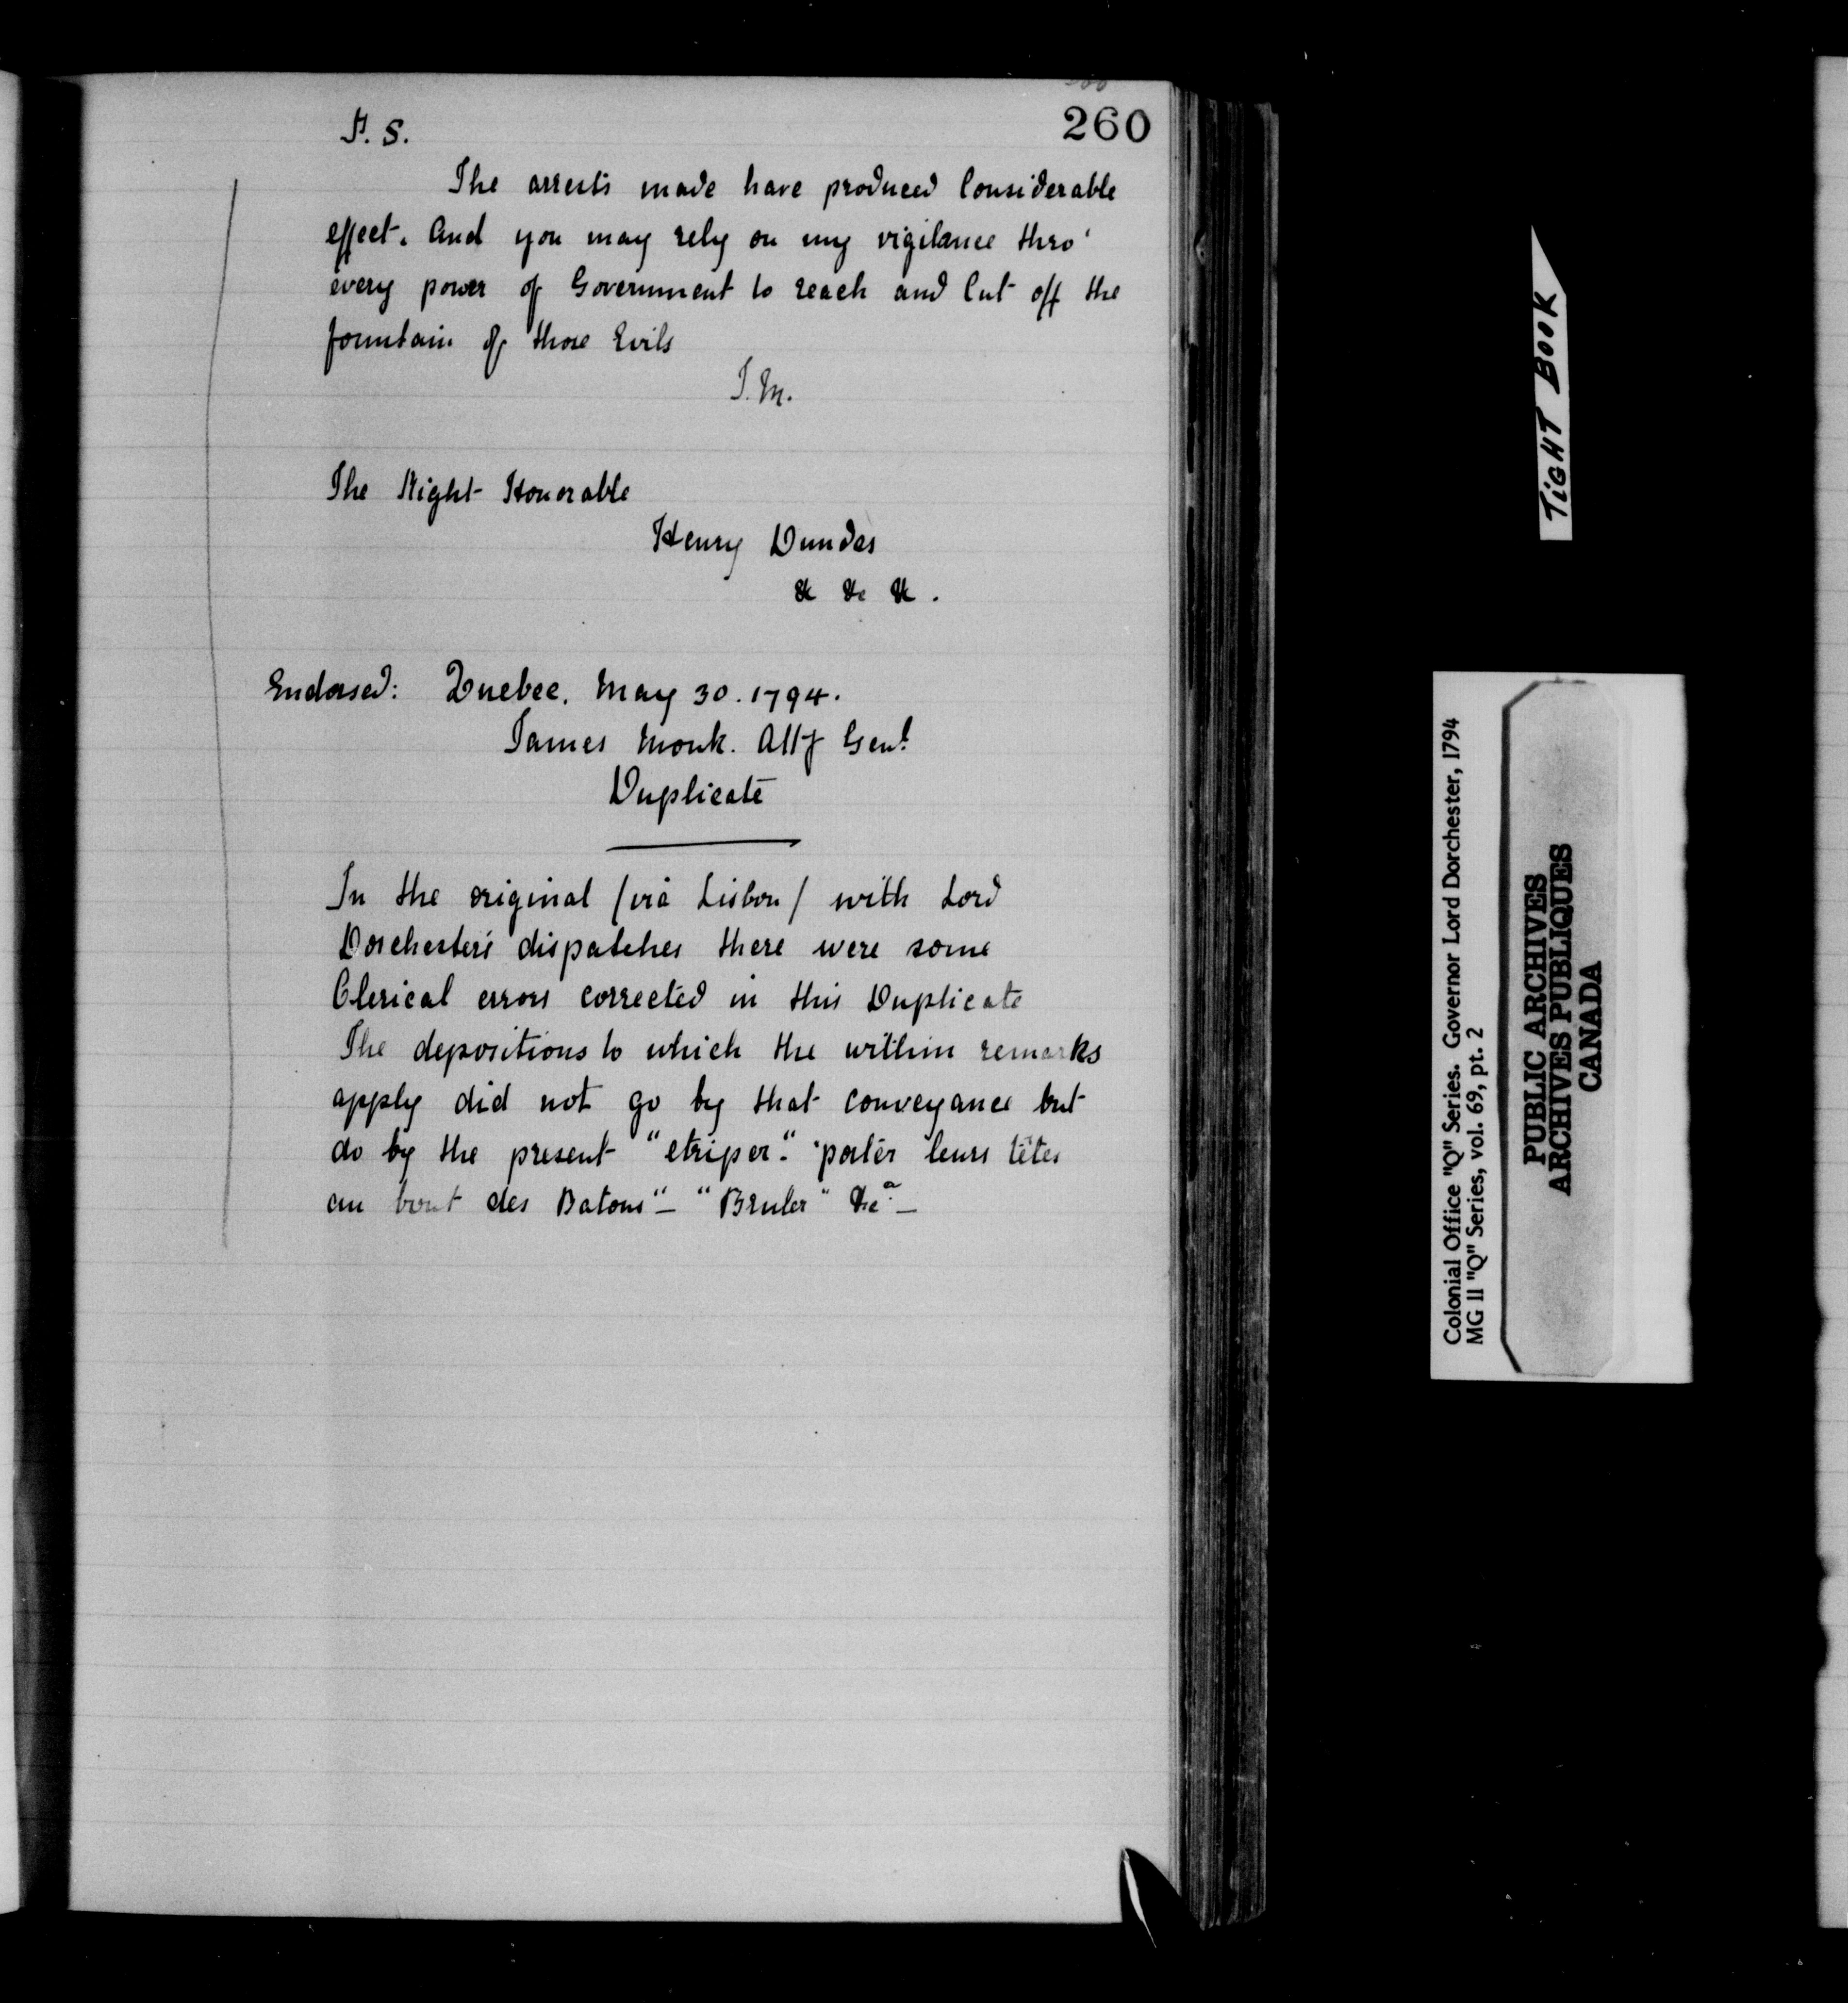 260
P. S.
The arrests made have produced Considerable
effect. And you may rely on my vigilance thro'
every power of Government to reach and Cut off the
fountain of those Evils
J. M.
The Right Honorable
Henry Dundas
&c &c &c.
Endorsed: Quebec. May 30. 1794.
James Monk. Atty Genl.
Duplicate
In the original /via Lisbon/ with Lord
Dorchester's dispatches there were some
Clerical errors corrected in this Duplicate
The depositions to which the within remarks
apply did not go by that conveyance but
do by the present "etriper". "porter leurs têtes
au bout des Batons" — "Bruler" &ca —
TIGHT BOOK
Colonial Office "Q" Series. Governor Lord Dorchester, 1794
MG 11 "Q" Series, vol. 69, pt. 2
PUBLIC ARCHIVES
ARCHIVES PUBLIQUES
CANADA